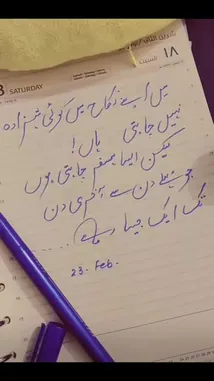 SATURDAY
١٨
السبت
میں اپنے نکاح میں کوئی شہزادہ
نہیں چاہتی ہاں!
لیکن ایسا ہمسفر چاہتی ہوں
جو پہلے دن سے آخری دن
تک ایک جیسا رہے
23. Feb.